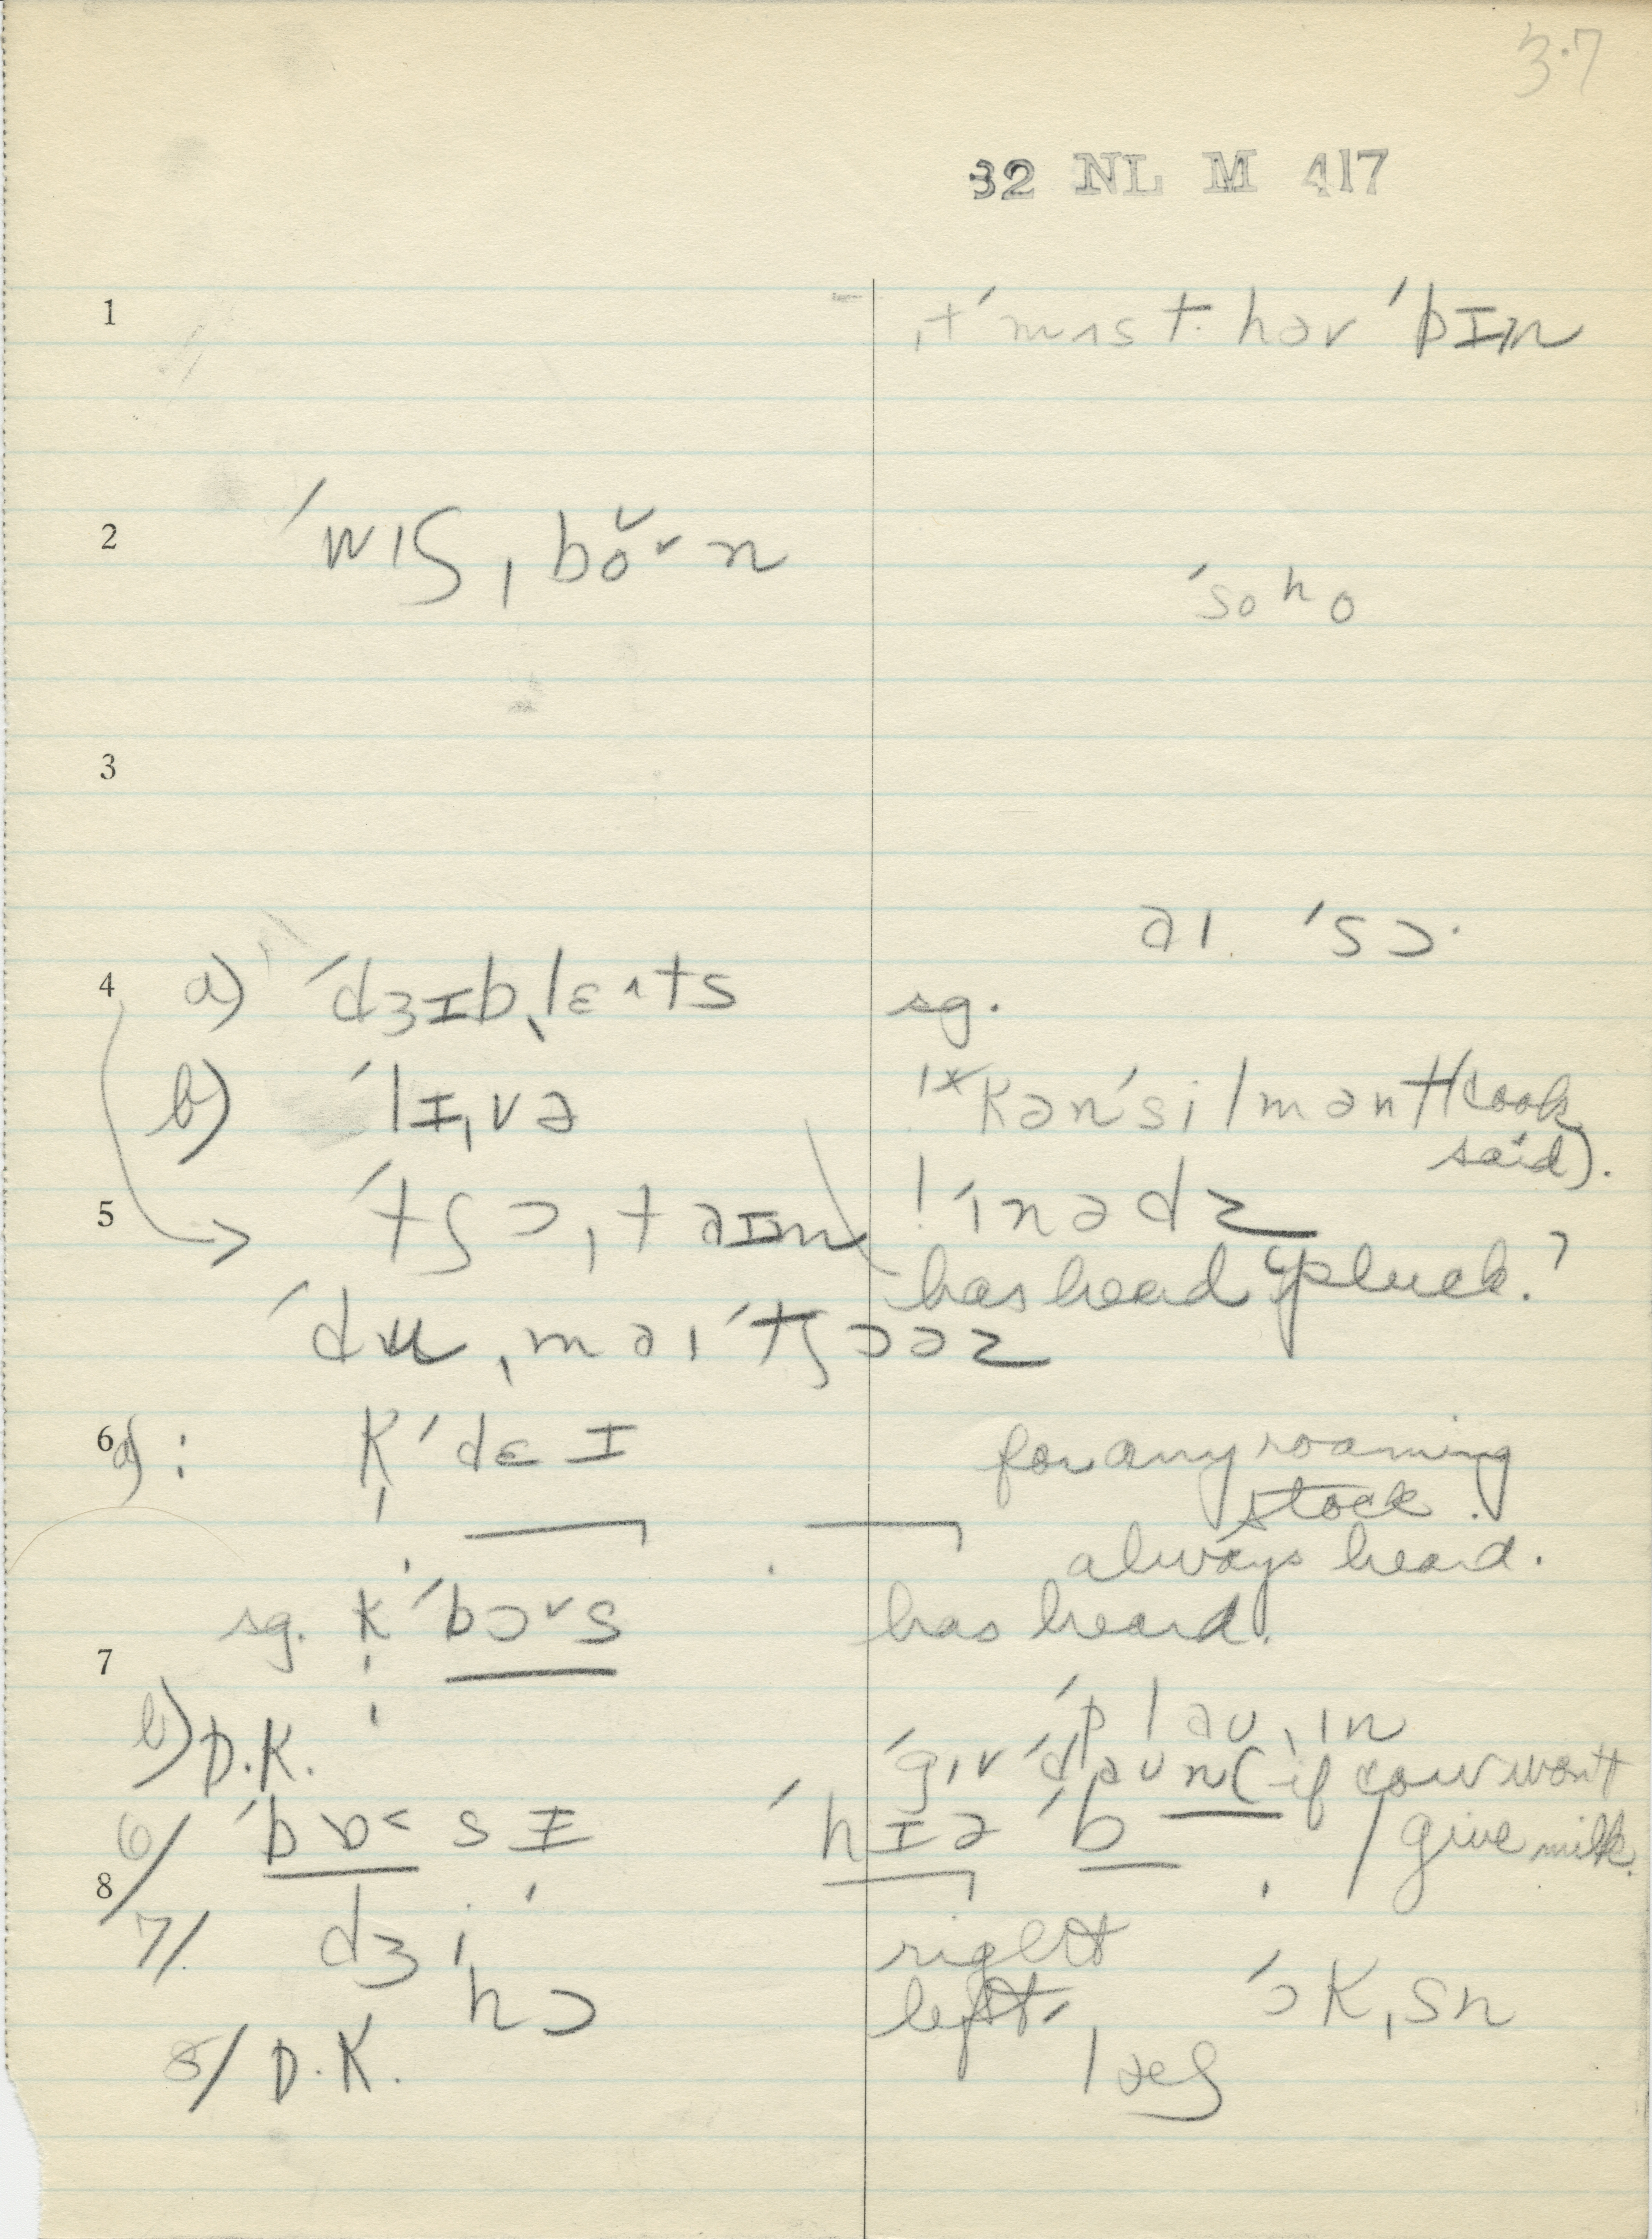 3.7
32 NL M 417
1
ˌɪt ˈmʌst həv ˈbɪn
2 ˈwɪʃˌboˇn
ˈso ho
3
aɪ ˈsɔ·
4 a) ˈdʒɪbˌlɛˑts sg.
b) ˈlɪˌvə kənˈsilmənt (cook
said).
5 ˈtʃɔˌtaɪm ! ˈɪnədz
has heard "pluck."
ˈduˌmaɪ ˈtʃɔəz
6 a) : k ˈdɛɪ for any roaming
stock.
always heard.
sg. k ˈbɔˇs has heard.
7
b) D.K. ˈplaʊˌɪn
ˈgɪv ˈdaʊn (if cow won't
6/ ˈbɒ˂sɪ ˈhɪə ˈb / give milk.
8
7/ dʒi right
hɔ left. ˈɔkˌsn
8/ D.K.